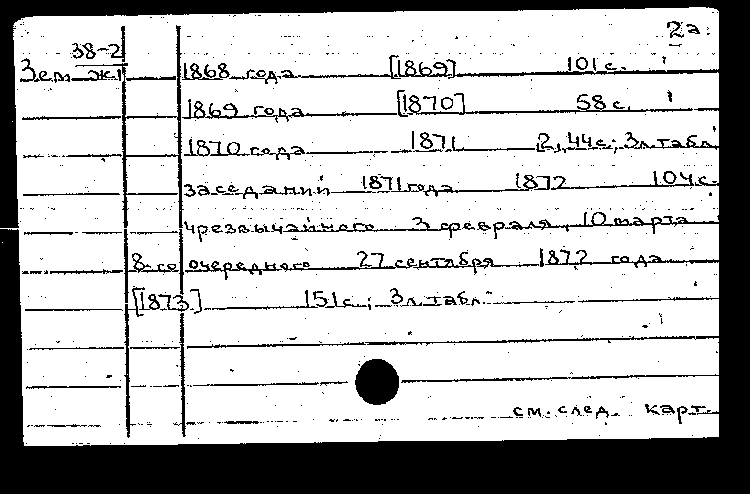 2а.
38-2
Зем. 1868 года [1869] 101 с.
1869 года [1870] 58 с.
1870 года 1871 2, 44 с.; 3 л. табл.
заседаний 1871 года 1872 104 с.
чрезвычайного 3 февраля, 10 марта
8-го очередного 27 сентября 1872 года
[1873] 151 с.; 3 л. табл.
см. след. карт.